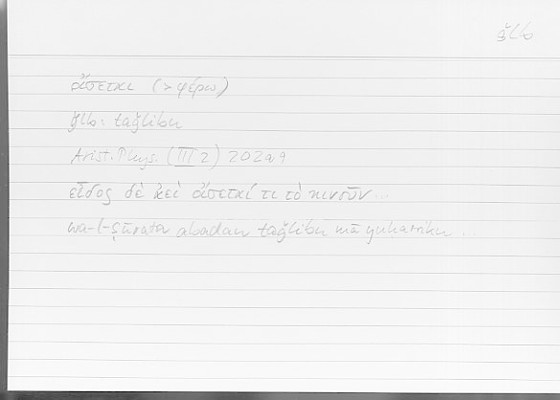 ǧlb
οἴσεται (> φέρω)
ǧlb: taǧlibu
Arist. Phys. (III 2) 202a9
εἶδος δὲ ἀεὶ οἴσεταί τι τὸ κινοῦν...
wa-l-ṣūrata abadan taǧlibu mā yuḥarriku...